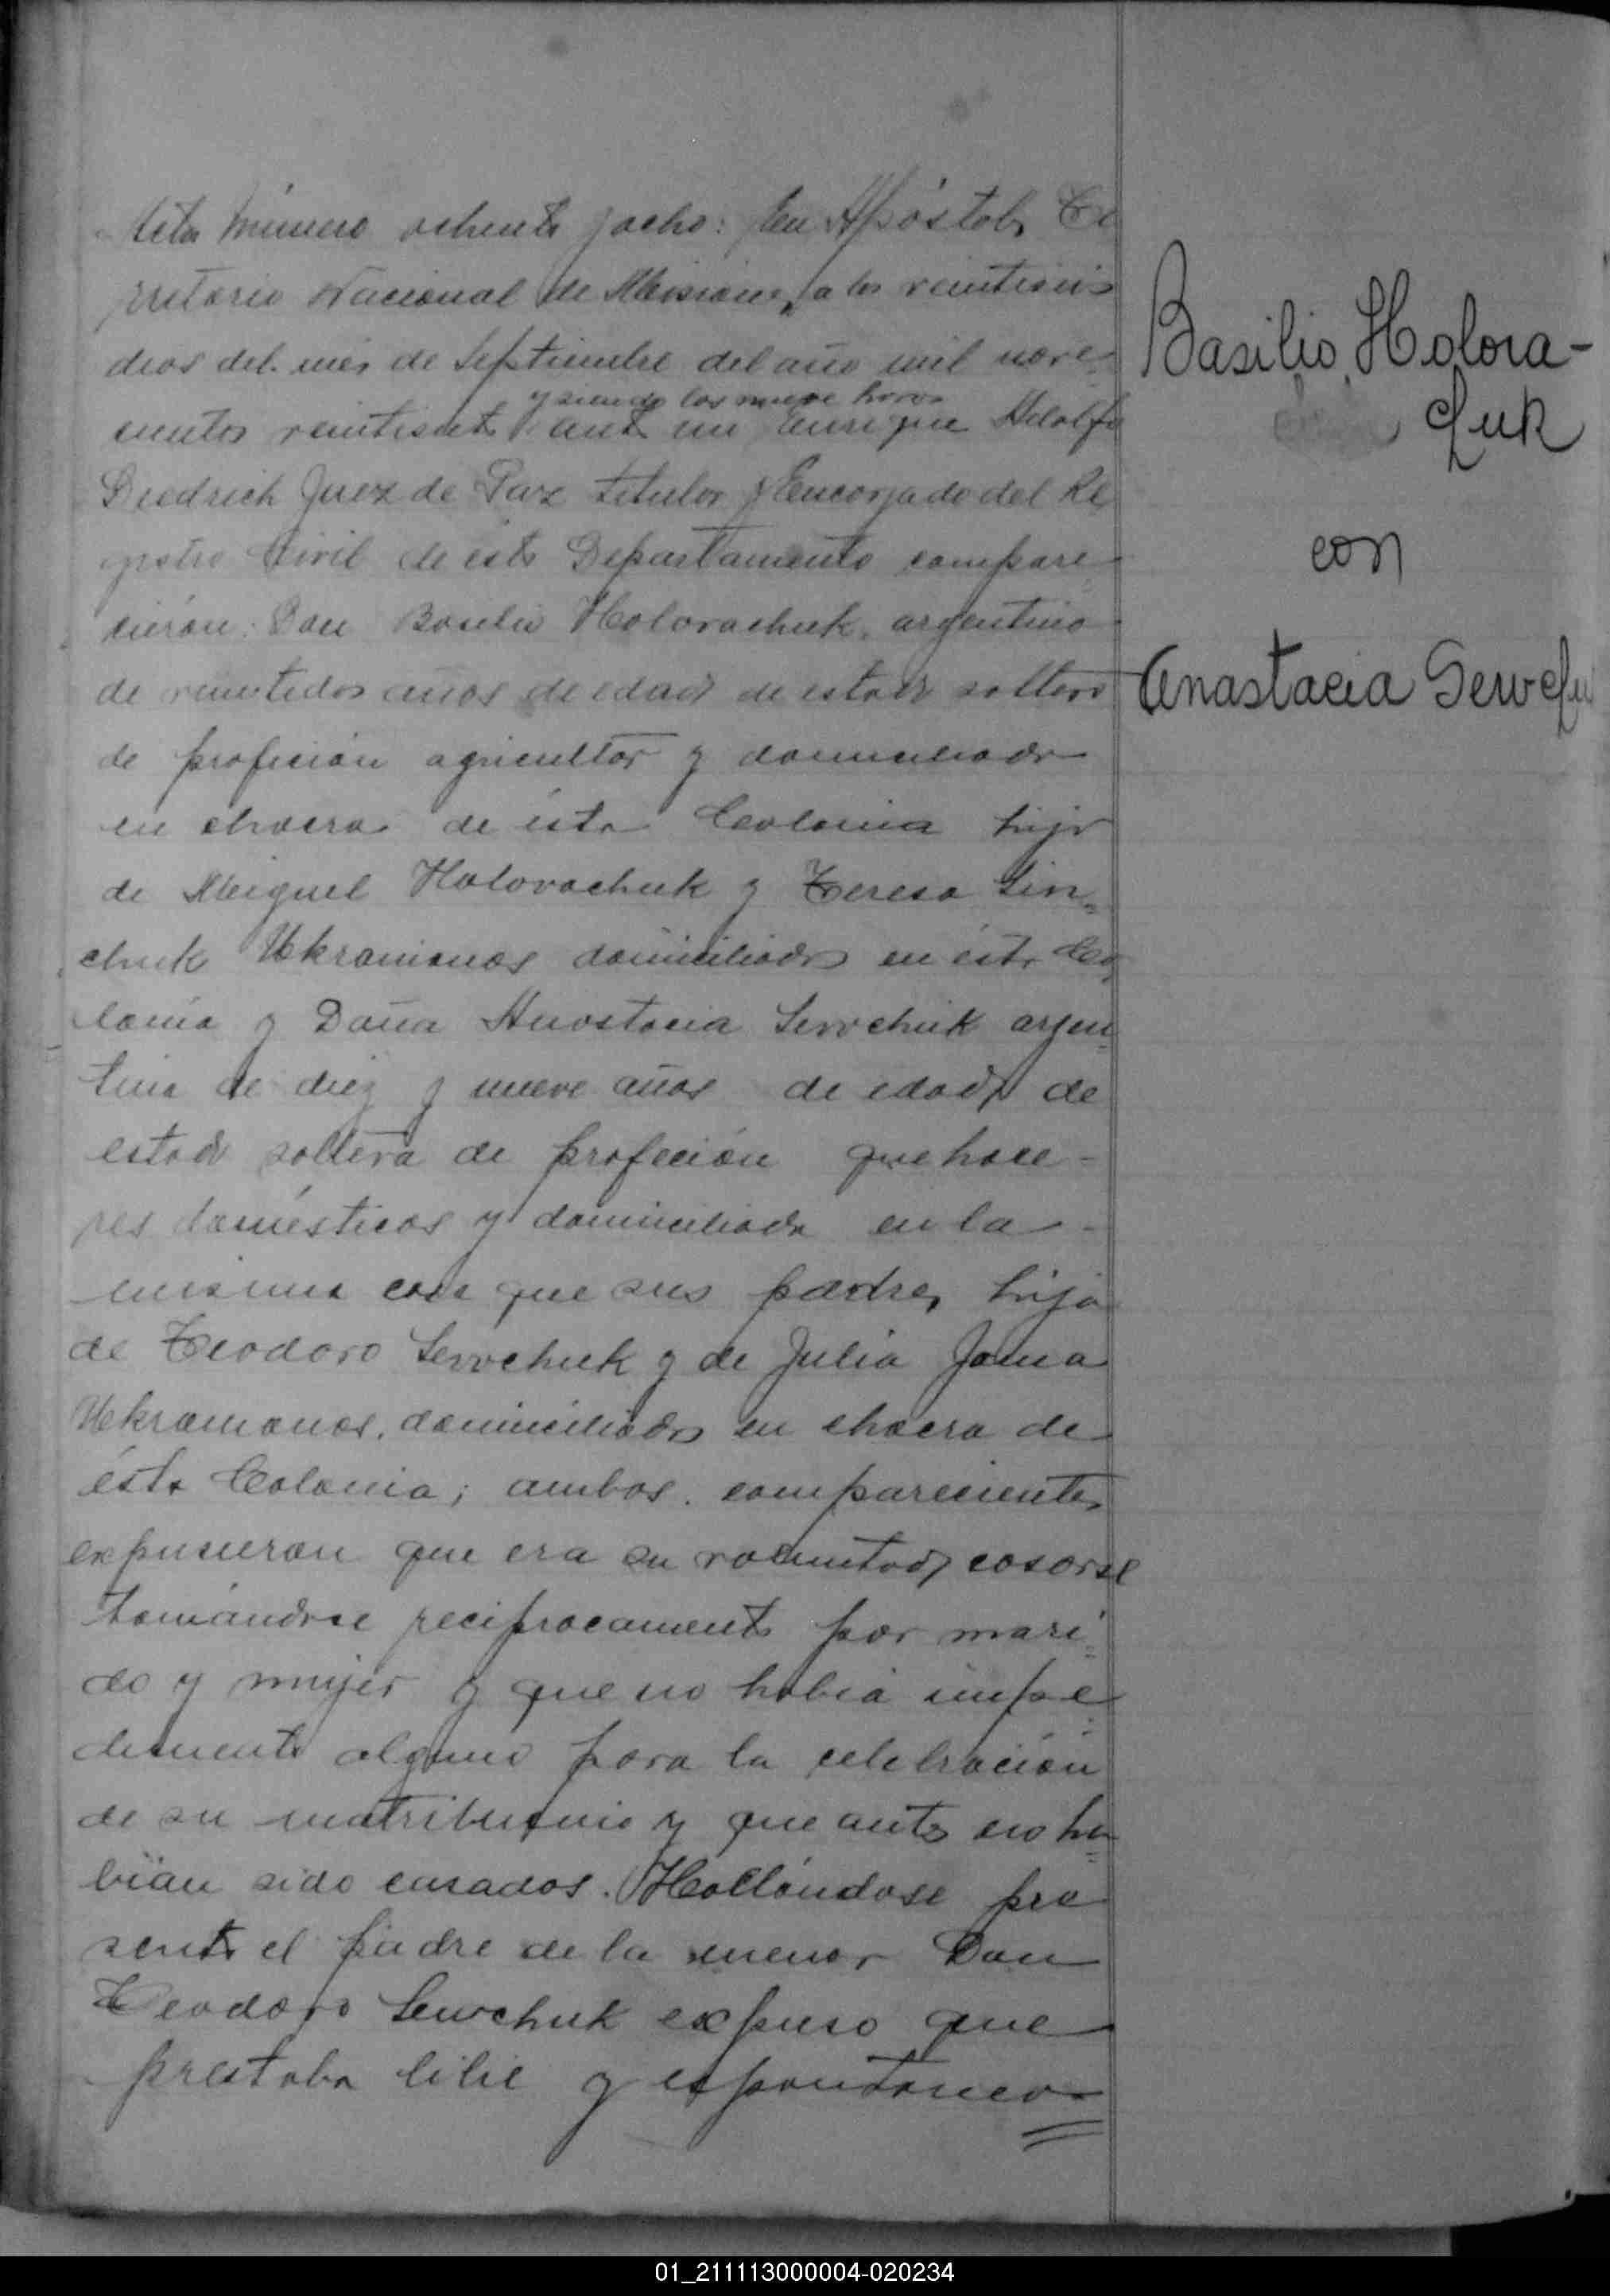 Acta Número ochenta y ocho: En Apóstoles Te
rritorio Nacional de Misiones, a los veintiseis
dias del mes de Septiembre del año mil nove
cientos veintisiete ante mi Enrique Adolfo
y siendo las nueve horas
Diedrich Juez de Paz titular y Encargado del Re
gistro Civil de este Departamento compare
cieron: Don Basilio Holovachuk, argentino
de veintedos años de edad de estado soltero
de profeción agricultor y domiciliado
en chacra de ésta Colonia hijo
de Miguel Holovachuk y Teresa Sin=
chuk Ukranianos domiciliados en ésta Co
lonia y Doña Anastacia Sewchuk argen
tina de diez y nueve años de edad, de
estado soltera de profeción quehace-
res domésticos y domiciliada en la -
misma casa que sus padres, hija
de Teodoro Sewchuk y de Julia Jama
Ukranianos, domiciliados en chacra de
ésta Colonia; ambos comparecientes
expusieron que era su voluntad, casarse
tomándose reciprocamente por mari=
do y mujer y que no había impe=
dimento alguno para la celebración
de su matribuonio y que antes no ha=
bían sido casados. Hallándose pre
sente el padre de la menor Don
Teodoro Sewchuk expuso que
prestaba libre y espontanea
Basilio Holova-
chuk
con
Anastacia Sewchu
01_211113000004-020234